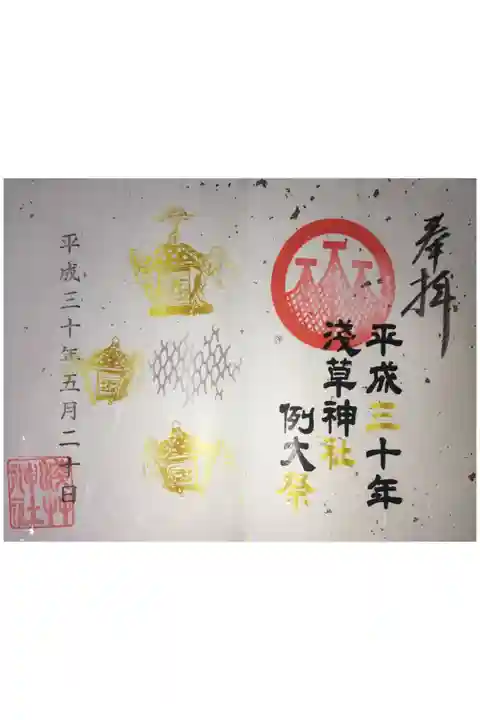 奉拝
平成三十年
浅草神社
例大祭
平成三十年五月二十日
浅草
神社